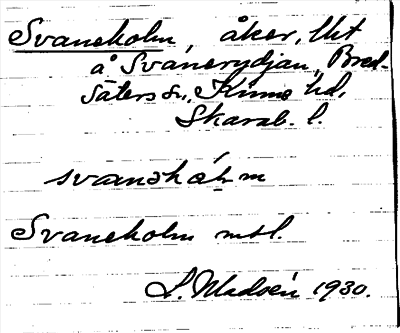 Svaneholm, åker, litt
å Svanerydjan, Bred-
säters sn, Kinne hd,
Skarab. l.
svanəhål·m
Svaneholm msl.
1930.